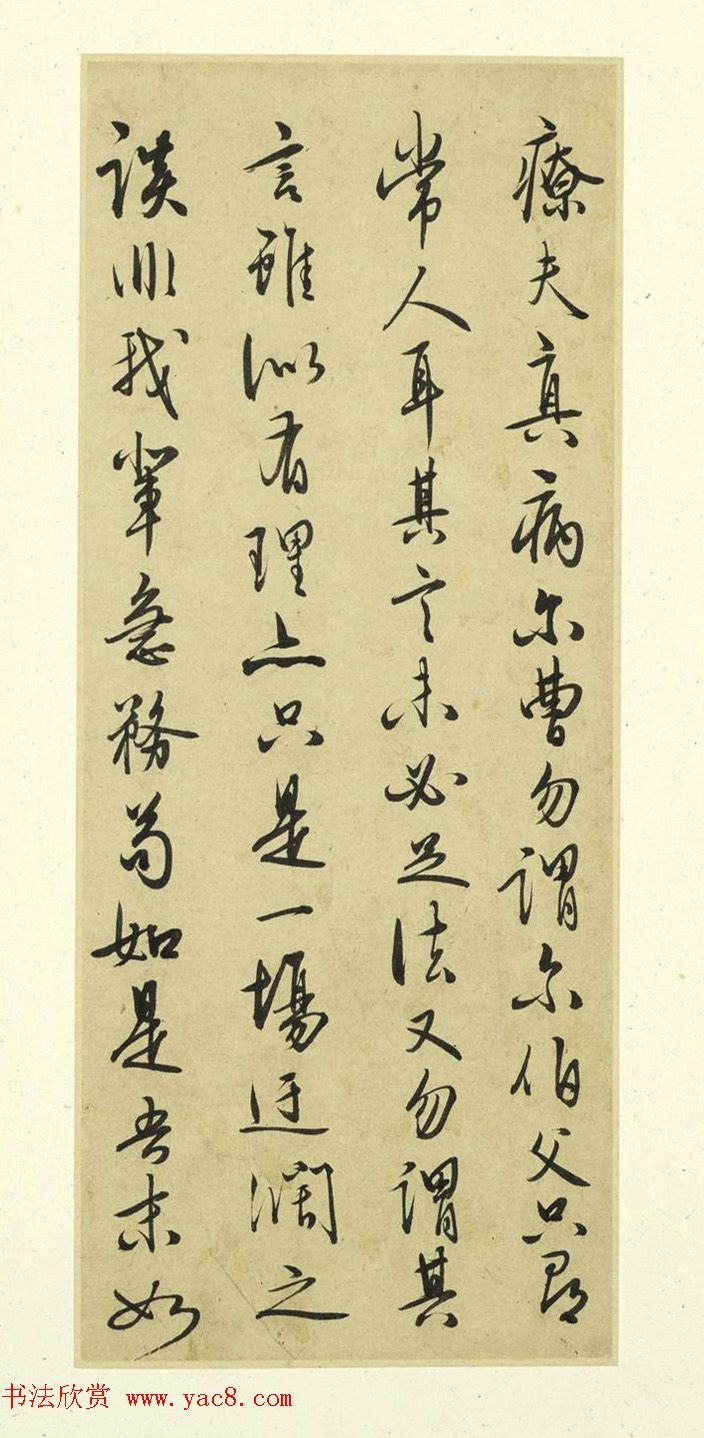 療夫真病尔曹勿謂尔伯父只尋
常人耳其言未必足法又勿謂其
言雖似有理亦只是一場迂濶之
談非我輩急務苟如是吾末如
书法欣赏 www.yac8.com